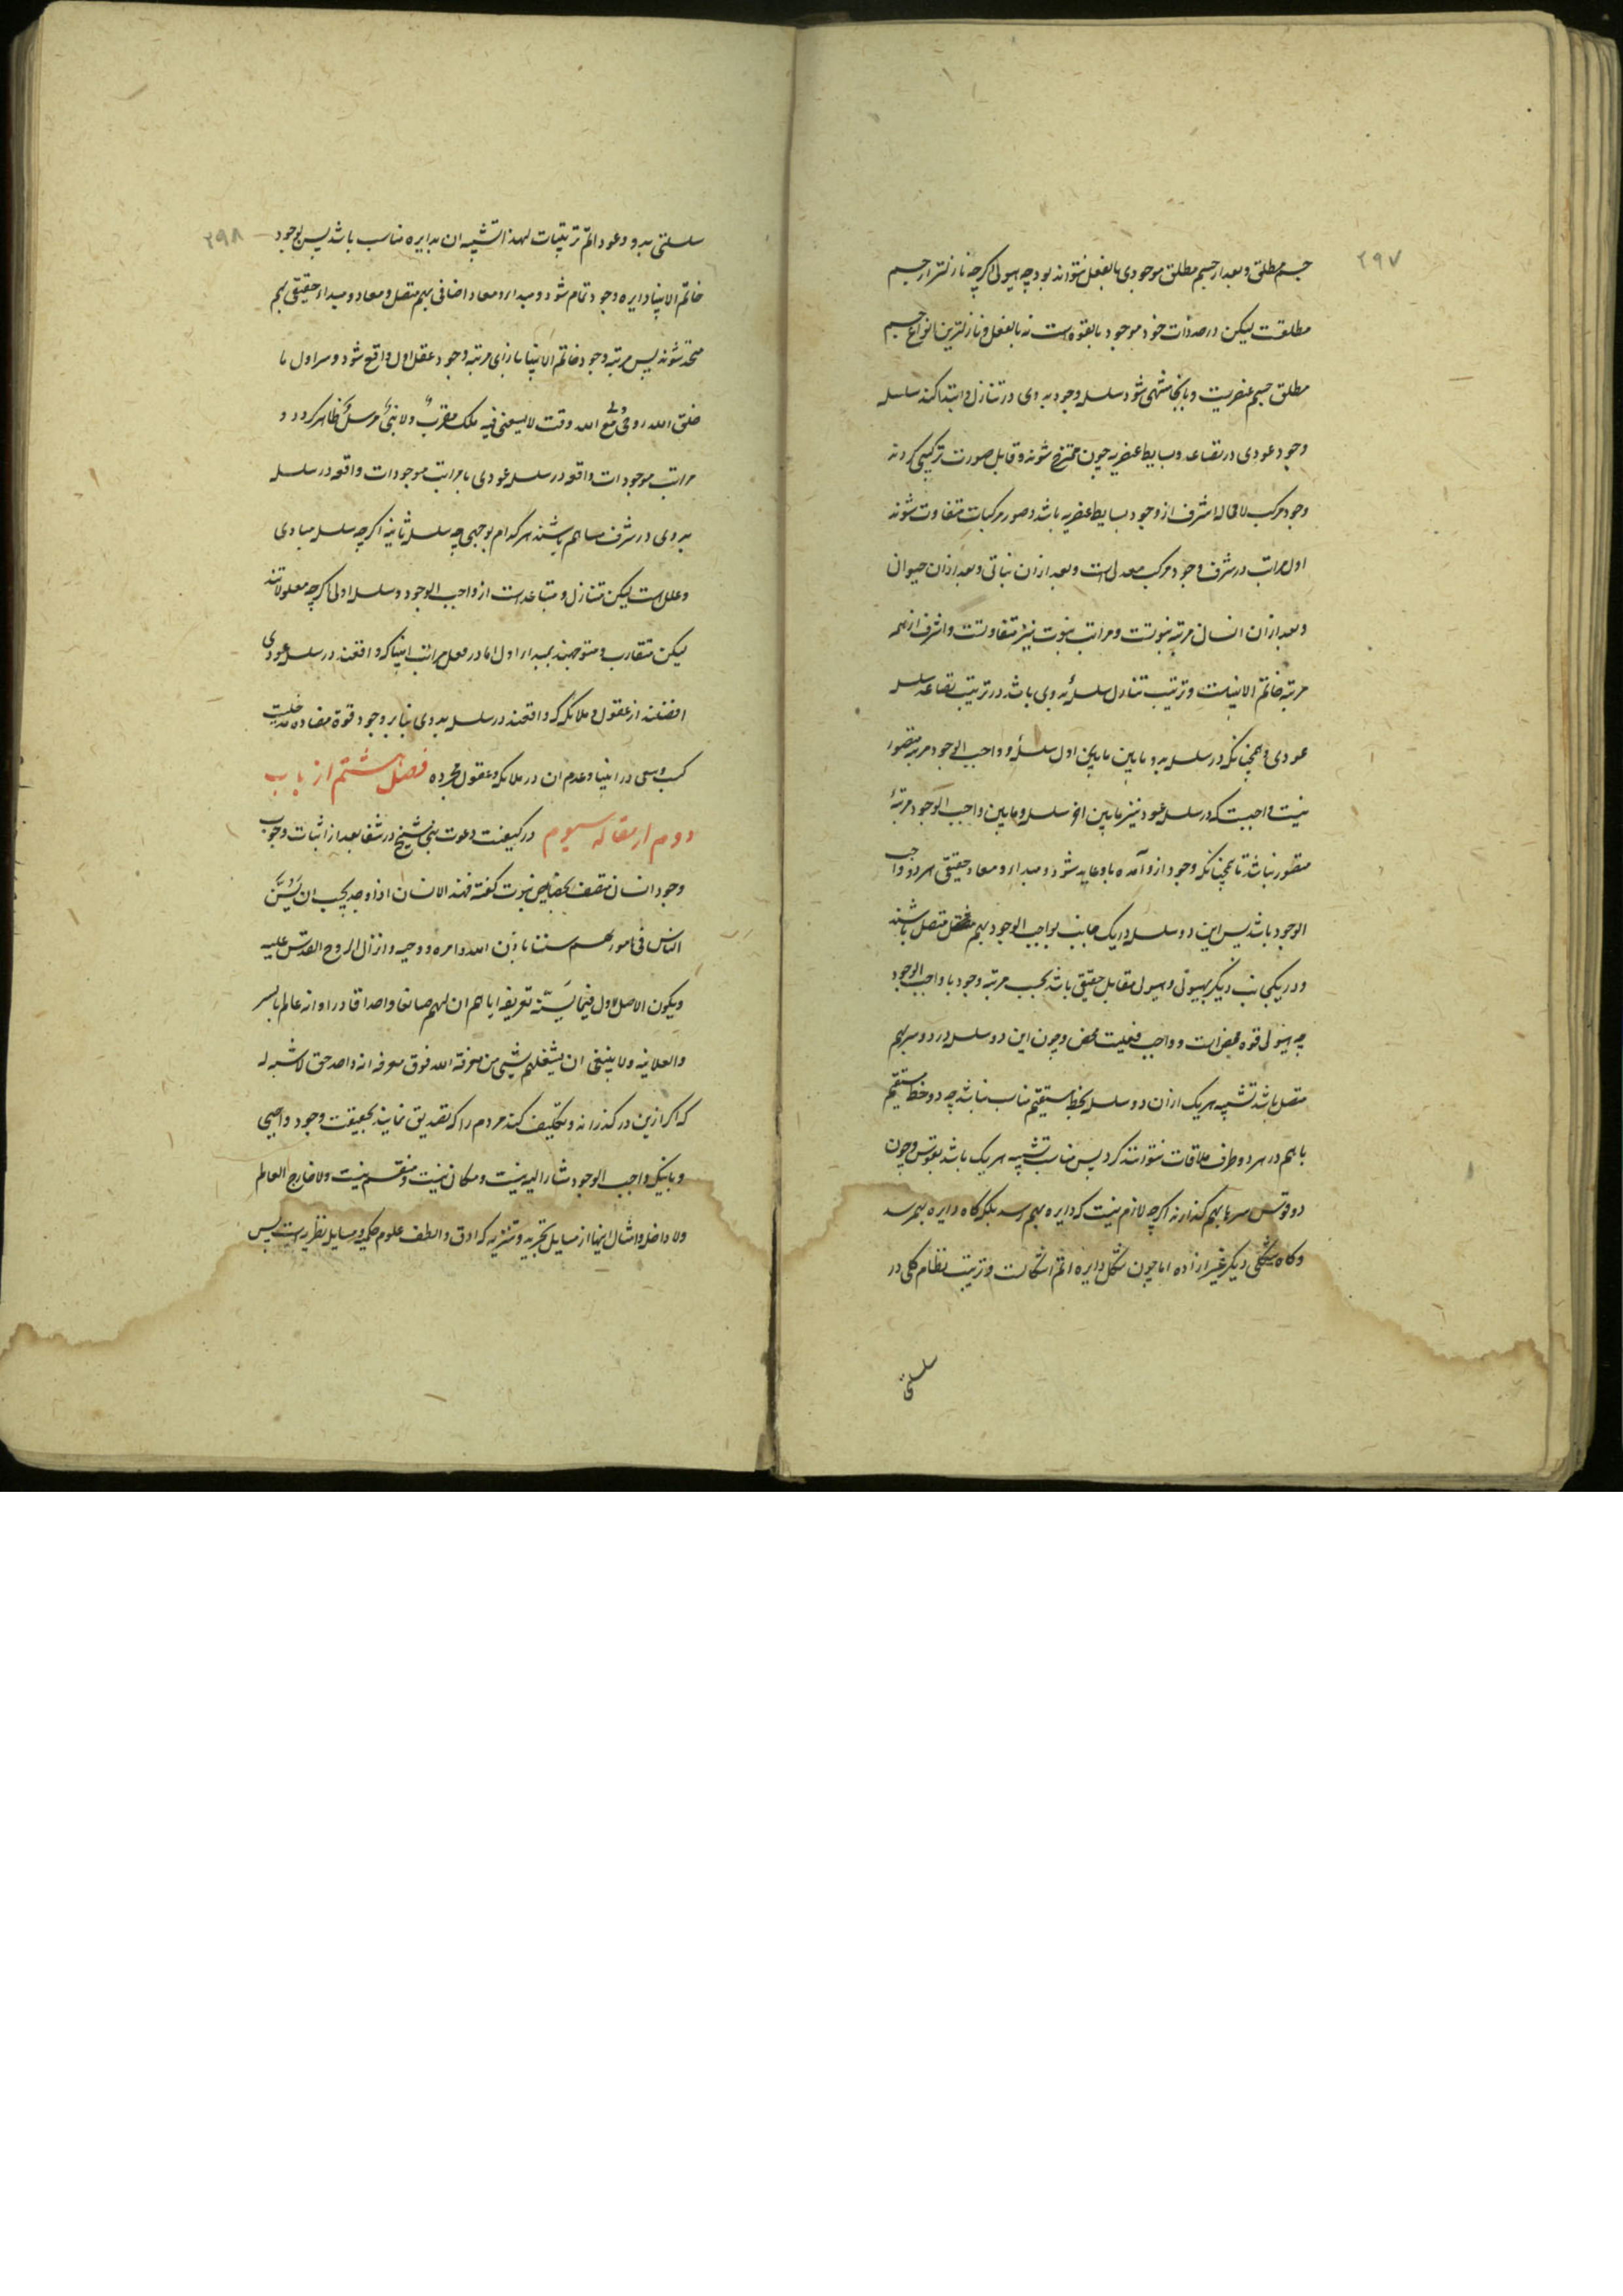 ۲۹۷
جسم مطلق و بعد از جسم مطلق موجودی بالفعل نتواند بود چه هیولی اکرچه نازلتر از جسم
مطلقست لیکن در حد ذات خود موجود بالقوه است نه بالفعل و نازلترین انواع جسم
مطلق جسم عنصریست و بانجا منتهی شود سلسله وجود بدوی در تنازل و ابتدا کند سلسله
وجود عودی در تصاعد و بسایط عنصریه چون ممتزج شوند و قابل صورت ترکیبی کردند
وجود مرکب لا محاله اشرف از وجود بسایط عنصریه باشد و صور مرکبات متفاوت شوند
اول مراتب در شرف وجود مرکب معدنی است و بعد از ان نباتی و بعد از ان حیوان
و بعد از ان انسان مرتبه نبوتست و مراتب نبوت نیز متفاوتست و اشرف از همه
مرتبه خاتم الانبیاست و ترتیب تنازل سلسلهٔ بدوی باشد در ترتیب تصاعد سلسله
عودی و همچنانکه در سلسله بدو مابین اول سلسله و واجب الوجود مرتبه متصور
نیست واجبست که در سلسله عود نیز مابین اخر سلسله و مابین واجب الوجود مرتبهٔ
متصور نباشد تا همچنانکه وجود ازو آمده باو عاید شود و مبداء و معاد حقیقی هر دو واجب
الوجود باشد پس این دو سلسله در یک جانب بواجب الوجود بهم متصل باشند
و در یکجانب دیکر بهیولی و هیولی مقابل حقیقی باشد بحسب مرتبه وجود با واجب الوجود
چه هیولی قوه محض است و واجب فعلیت محض و چون این دو سلسله در دو سر بهم
متصل باشد تشبیه هر یک از ان دو سلسله بخط مستقیم مناسب نباشد چه دو خط مستقیم
با هم در هر دو طرف ملاقات نتوانند کرد پس مناسب تشبیه هر یک باشد بقوس و چون
دو قوس سر بهم کذارند اکرچه لازم نیست که دایره بهم رسد بلکه کاه دایره بهم رسد
و کاه شکلی دیکر غیر از اده اما چون شکل دایره اتم اشکالست و ترتیب نظام کلی در
سلسلتی
۲۹۸
سلسلتی بدو و عود اتم ترتیبات لهذا تشبیه ان بدایره مناسب باشد پس بوجود
خاتم الانبیا دایره وجود تمام شود و مبداء و معاد اضافی بهم متصل و معاد و مبداء حقیقی بهم
متحد شوند پس مرتبه وجود خاتم الانبیا بازای مرتبه وجود عقل اول واقع شود و سر اول ما
خلق الله روحی و لی مع الله وقت لا یسعنی فیه ملک مقرب ولا نبی مرسل ظاهر کردد و
مراتب موجودات واقعه در سلسله عودی با مراتب موجودات واقعه در سلسله
بدوی در شرف مساهم باشند هر کدام بوجهی چه سلسله ثانیه اکرچه سلسله مبادی
و علل است لیکن متنازل و متباعد است از واجب الوجود و سلسله اولی اکرچه معلولاتند
لیکن متقارب و متوجهند بمبداء اول اما در فعل مراتب انبیا که واقعند در سلسله عودی
افضلند از عقول و ملائکه که واقعند در سلسله بدوی بنا بر وجود قوة مضاده و مدخلیت
کسب و سعی در انبیا و عدم ان در ملائکه و عقول مجرده فصل هشتم از باب
دوم از مقاله سیوم در کیفیت دعوت نبی شیخ در شفا بعد از اثبات وجوب
وجود انسان متصف بخصایص نبوت کفته فهذا الانسان اذا وجد یجب ان یسن
الناس فی امورهم سننا باذن الله و امره و وحیه و انزال الروح القدس علیه
و یکون الاصل الاول فیما یسنه تعریفه ایاهم ان لهم صانعا واحدا قادرا و انه عالم بالسر
والعلانیه ولا ینبغی ان یشغلهم بشیی من معرفة الله فوق معرفه انه واحد حق لا شبه له
که اکر ازین در کذراند و تکلیف کند مردم را که تصدیق نمایند بحقیقت وجود واجبی
و بانیکه واجب الوجود مشار الیه نیست و مکان نیست و منقسم نیست و لا خارج العالم
ولا داخل و امثال اینها از مسایل تجریه و تنزیه که ادق و الطف علوم حکمیه و مسایل نظریه است پس